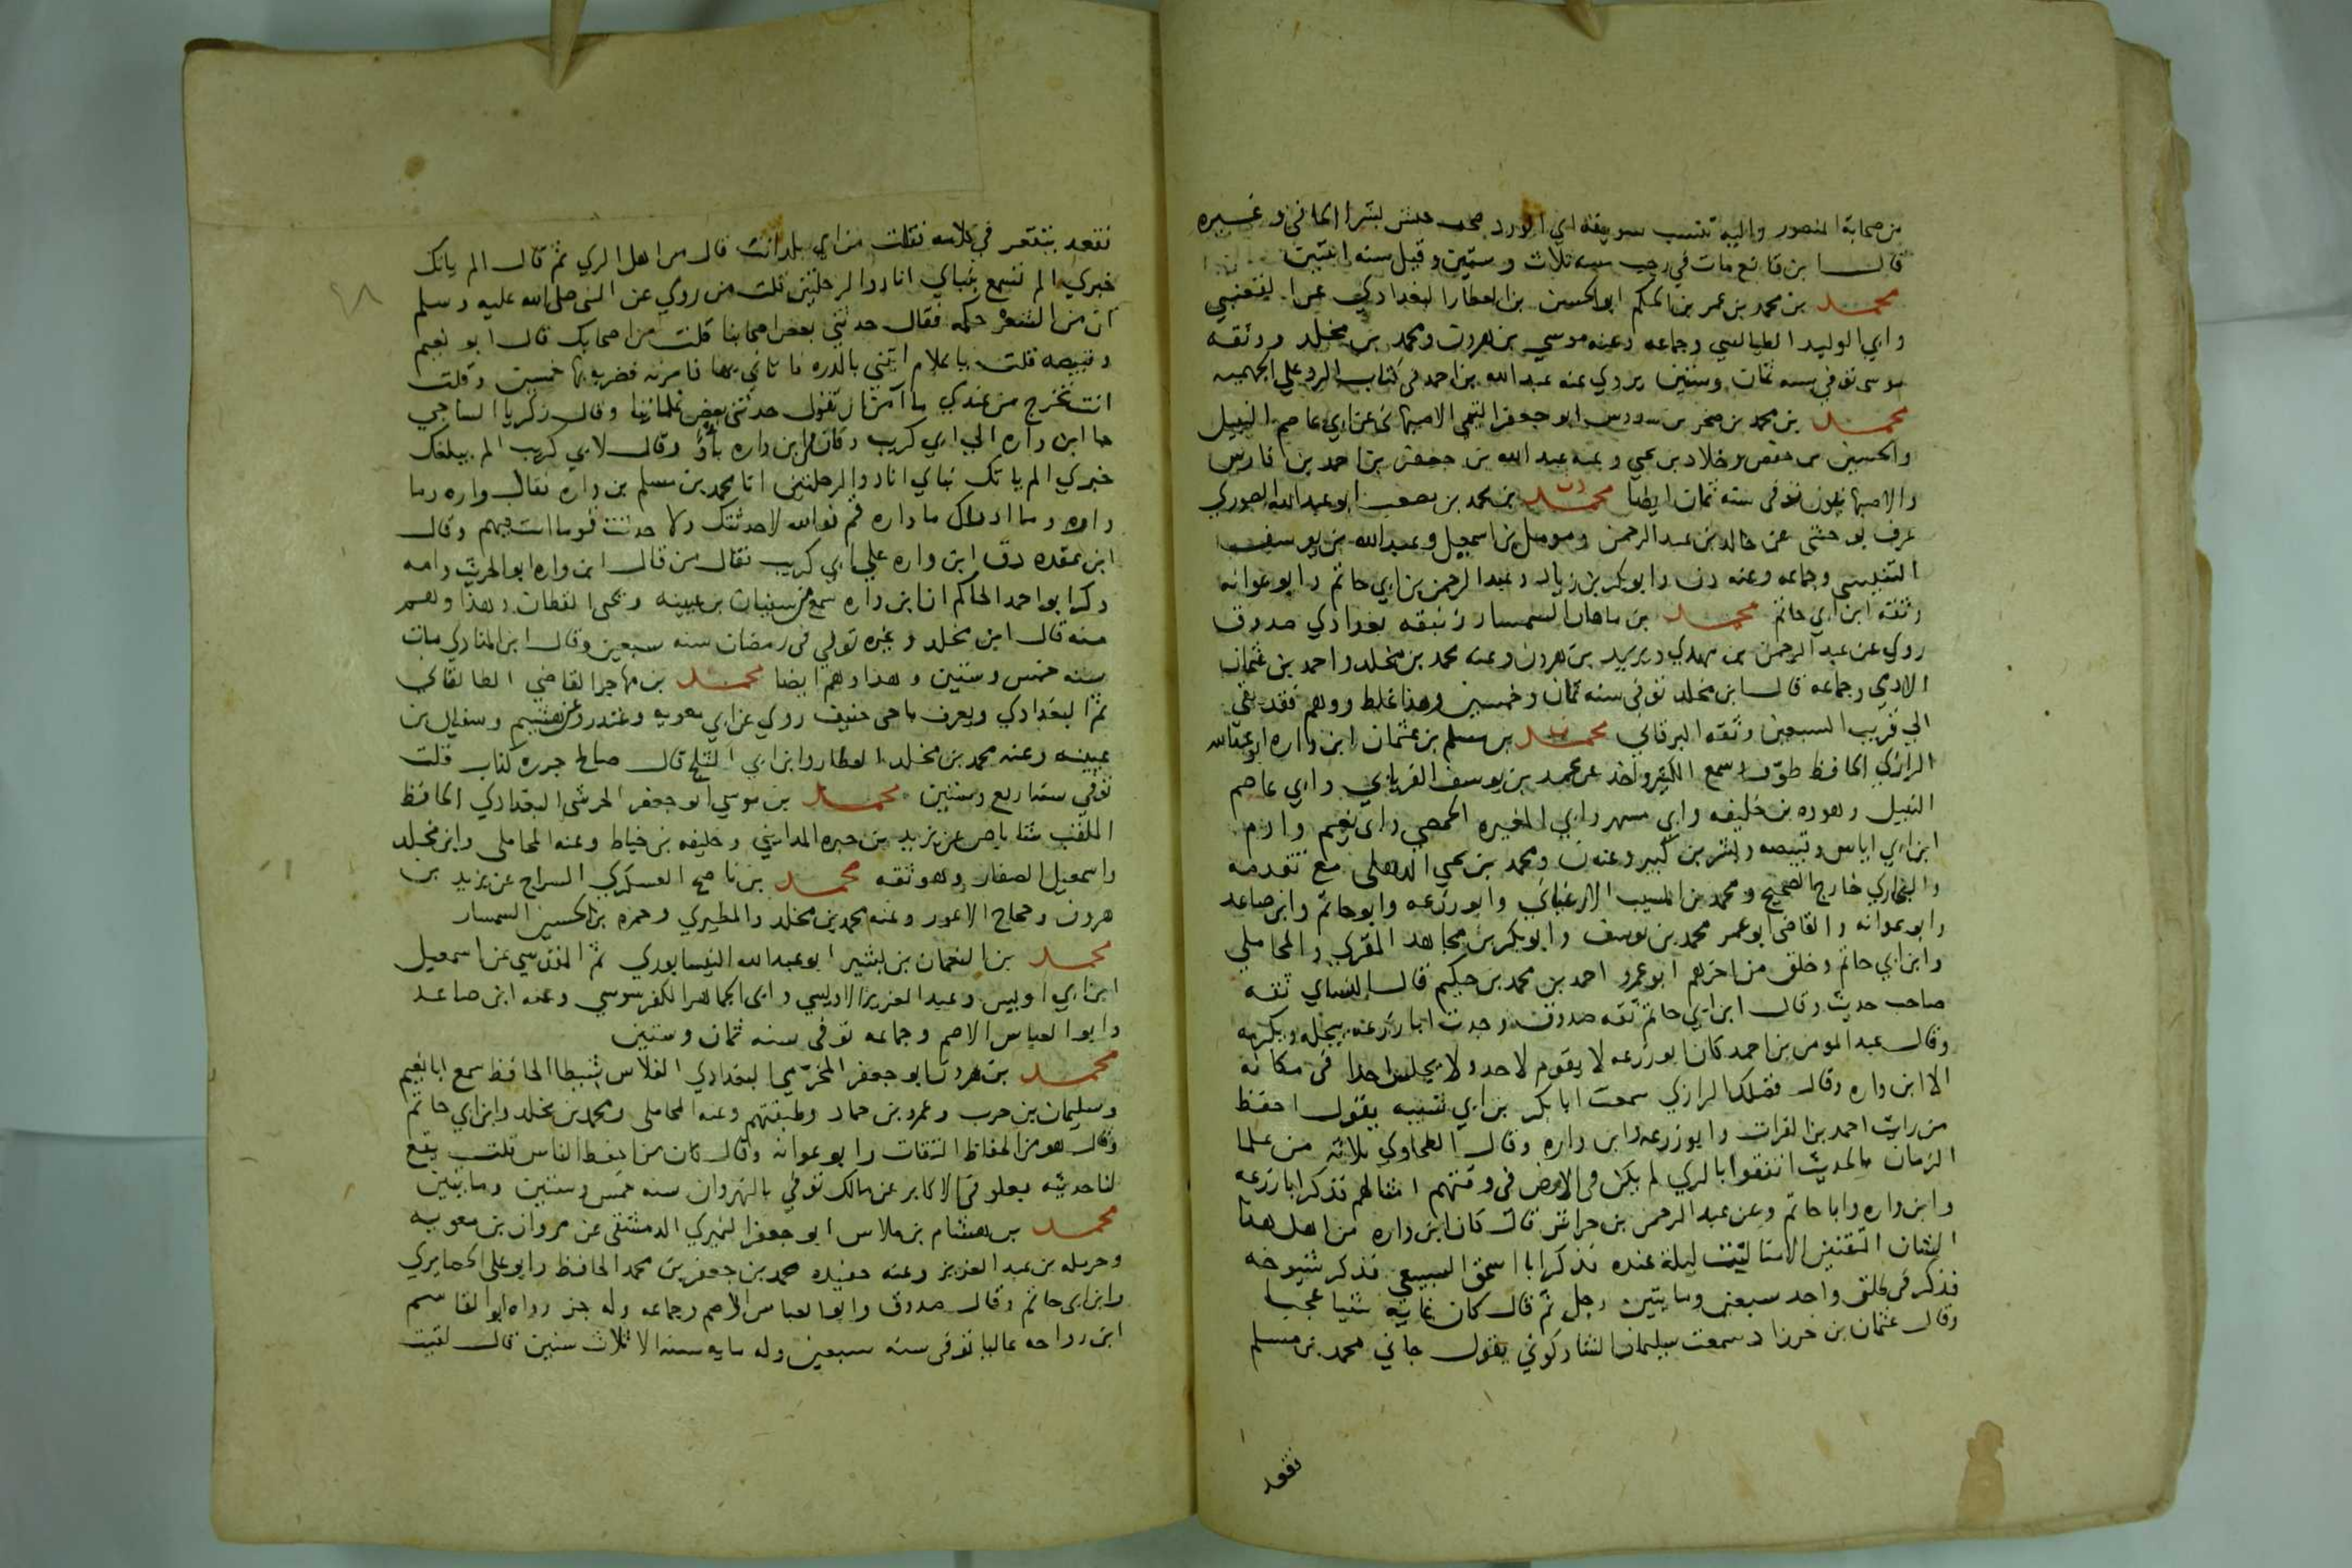 من صحابة المنصور واليه تنسب سويقة ابي الورد صحب محمد بشرا الحافي وغيره
قال ابن قانع مات في رجب سنه ثلاث وستين وقيل سنه اثنتين
محمد بن محمد بن عمر بن الحكم ابو الحسن بن العطار البغدادي عن القعنبي
وابي الوليد الطيالسي وجماعه وعنه موسي بن هرون ومحمد بن مخلد ووثقه
موسي توفي سنه ثمان وستين يروي عنه عبد الله بن احمد في كتاب الرد علي الجهميه
محمد بن محمد بن صخر بن سدوس ابو جعفر التيمي الاصبهاني عن ابي عاصم النبيل
والحسين بن حفص وخلاد بن يحي وعنه عبد الله بن جعفر بن احمد بن فارس
والاصبهانيون توفي سنه ثمان ايضا محمد بن محمد بن مصعب ابو عبد الله الصوري
عرف بوحشي عن خالد بن عبد الرحمن ومومل بن اسمعيل وعبد الله بن يوسف
التنيسي وجماعه وعنه د ن وابو بكر بن زياد وعبد الرحمن بن ابي حاتم وابو عوانه
وثقه ابن ابي حاتم محمد بن ماهان السمسار زنبقه بغدادي صدوق
روي عن عبد الرحمن بن مهدي ويزيد بن هرون وعنه محمد بن مخلد واحمد بن عثمان
الادمي وجماعه قال ابن مخلد توفي سنه ثمان وخمسين وهذا غلط ووهم فقد بقي
الي قريب السبعين وثقه البرقاني محمد بن مسلم بن عثمان ابن واره ابو عبد الله
الرازي الحافظ طوف وسمع الكثير واخذ عن محمد بن يوسف الفريابي وابي عاصم
النبيل وهوده بن خليفه وابي مسهر وابي المغيره الحمصي وابي نعيم وادم
ابن ابي اياس وقبيصه وبشر بن كثير وعنه ن ومحمد بن يحي الذهلي مع تقدمه
والبخاري خارج الصحيح ومحمد بن المسيب الارغياني وابو زرعه وابو حاتم وابن صاعد
وابو عوانه والقاضي ابو عمر محمد بن يوسف وابو بكر بن مجاهد المقري والمحاملي
وابن ابي حاتم وخلق من اخرهم ابو عمرو احمد بن محمد بن حكيم قال النساي ثقه
صاحب حديث وقال ابن ابي حاتم ثقه صدوق وجدت ابا زرعه يبجله ويكرمه
وقال عبد المومن بن احمد كان ابو زرعه لا يقوم لاحد ولا يجلس احدا في مكانه
الا ابن واره وقال فضلك الرازي سمعت ابا بكر بن ابي شيبه يقول احفظ
من رايت احمد بن الفرات وابو زرعه وابن واره وقال الطحاوي ثلاثه من علما
الزمان بالحديث اتفقوا بالري لم يكن في الارض في وقتهم امثالهم فذكر ابا زرعه
وابن واره وابا حاتم وعن عبد الرحمن بن خراش قال كان ابن واره من اهل هذا
الشان المتقنين الامنا كنت ليلة عنده فذكر ابا اسحق السبيعي فذكر شيوخه
فذكر في طلق واحد سبعين ومايتين رجل ثم قال كان غايه شيا عجبا
وقال عثمان بن خرزاد سمعت سليمان الشاذكوني يقول جاني محمد بن مسلم
فقعد
فقعد يتقعر في كلامه فقلت من اي بلد انت قال من اهل الري ثم قال الم ياتك
خبري الم تسمع بنباي انا ذو الرحلتين قلت من روي عن النبي صلي الله عليه وسلم
ان من الشعر حكمه فقال حدثني بعض اصحابنا قلت من اصحابك قال ابو نعيم
وقبيصه قلت يا غلام ايتني بالدره فاتاني بها فامرته فضربه بها خمسين وقلت
انت تخرج من عندي ما آمن ان تقول حدثني بعض غلماننا وقال زكريا الساجي
جا ابن واره الي ابي كريب وكان لابن واره بأو وقال لابي كريب الم يبلغك
خبري الم ياتك نباي انا ذو الرحلتين انا محمد بن مسلم بن واره فقال واره وما
واره وما ادراك ما واره قم فوالله لاحدثتك ولا حدثت قوما انت فيهم وقال
ابن عقده دق ابن واره علي ابي كريب فقال من قال ابن واره ابو الحديث وامه
وذكر ابو احمد الحاكم ان ابن واره سمع من سفيان بن عيينه ويحي القطان وهذا وهم
منه قال ابن مخلد وغيره توفي في رمضان سنه سبعين وقال ابن المنادي مات
سنه خمس وستين وهذا وهم ايضا محمد بن مهاجر القاضي الطالقاني
ثم البغدادي ويعرف باخي حنيف روي عن ابي معويه وغندر وعن هشيم وسفين بن
عيينه وعنه محمد بن مخلد العطار وابن ابي الثلج قال صالح جزره كذاب قلت
توفي سنه اربع وستين محمد بن موسي ابو جعفر الحرشي البغدادي الحافظ
الملقب شاباص عن يزيد بن حبره المدايني وخليفه بن خياط وعنه المحاملي وابن مخلد
واسمعيل الصفار وهو ثقه محمد بن ناصح العسكري السراج عن يزيد بن
هرون وحجاج الاعور وعنه محمد بن مخلد والمطيري وحمزه بن الحسين السمسار
محمد بن النعمان بن بشير ابو عبد الله النيسابوري ثم المقدسي عن اسمعيل
ابن ابي اويس وعبد العزيز الاويسي وابي الجماهر الكفرسوسي وعنه ابن صاعد
وابو العباس الاصم وجماعه توفي سنه ثمان وستين
محمد بن هرون ابو جعفر المخرمي البغدادي الفلاس شيطا الحافظ سمع ابا نعيم
وسليمان بن حرب وعمرو بن حماد وطبقتهم وعنه المحاملي ومحمد بن مخلد وابن ابي حاتم
وقال هو من الحفاظ الثقات وابو عوانه وقال كان من احفظ الناس قلت يقع
لنا حديثه بعلو في الاكابر عن مالك توفي بالنهروان سنه خمس وستين ومايتين
محمد بن هشام بن ملاس ابو جعفر النميري الدمشقي عن مروان بن معويه
وحرمله بن عبد العزيز وعنه حفيده محمد بن جعفر بن محمد الحافظ وابو علي الحصايري
وابن ابي حاتم وقال صدوق وابو العباس الاصم وجماعه وله جز رواه ابو القاسم
ابن رواحه عاليا توفي سنه سبعين وله مايه سنه الا ثلاث سنين قال لقيت